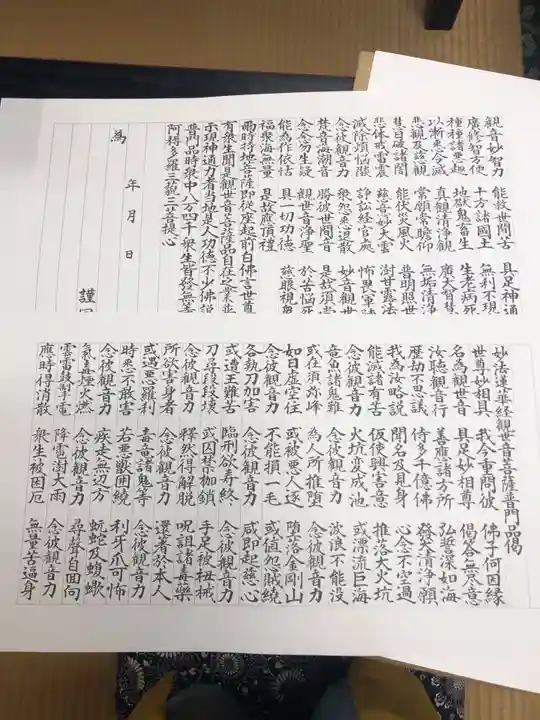 觀音妙智力 能救世間苦 具足神通
廣修智方便 十方諸國土 無利不現
種種諸惡趣 地獄鬼畜生 生老病死
以漸悉令滅 真觀清淨觀 廣大智慧
悲觀及慈觀 常願常瞻仰 無垢清淨
慧日破諸闇 能伏災風火 普明照世
悲体戒雷震 慈音妙大雲 澍甘露法
滅除煩惱焰 諍訟經官處 怖畏軍陣
念彼觀音力 衆怨悉退散 妙音觀世
梵音海潮音 勝彼世間音 是故須常
念念勿生疑 觀世音淨聖 於苦惱死
能為作依怙 具一切功德 慈眼視衆
福聚海無量 是故應頂禮
爾時持地菩薩即從座起前白佛言世尊
有衆生聞是觀世音菩薩品自在之業普
示現神通力者當知是人功德不少佛說
普門品時衆中八万四千衆生皆發無等
阿耨多羅三藐三菩提心
年 月 日 謹
為
妙法蓮華經觀世音菩薩普門品偈
世尊妙相具 我今重問彼 佛子何因緣
名為觀世音 具足妙相尊 偈答無盡意
汝聽觀音行 善應諸方所 弘誓深如海
歷劫不思議 侍多千億佛 發大清淨願
我為汝略說 聞名及見身 心念不空過
能滅諸有苦 假使興害意 推落大火坑
念彼觀音力 火坑變成池 或漂流巨海
竜魚諸鬼難 念彼觀音力 波浪不能没
或在須弥峰 為人所推堕 念彼觀音力
如日虚空住 或被惡人逐 堕落金剛山
念彼觀音力 不能損一毛 或值怨賊繞
各執刀加害 念彼觀音力 咸即起慈心
或遭王難苦 臨刑欲壽終 念彼觀音力
刀尋段段壊 或囚禁枷鎖 手足被杻械
念彼觀音力 釋然得解脫 呪詛諸毒藥
所欲害身者 念彼觀音力 還著於本人
或遇惡羅刹 毒竜諸鬼等 念彼觀音力
時悉不敢害 若惡獸圍繞 利牙爪可怖
念彼觀音力 疾走無邊方 蚖蛇及蝮蠍
氣毒煙火燃 念彼觀音力 尋聲自回向
雲雷鼓掣電 降雹澍大雨 念彼觀音力
應時得消散 衆生被困厄 無量苦逼身